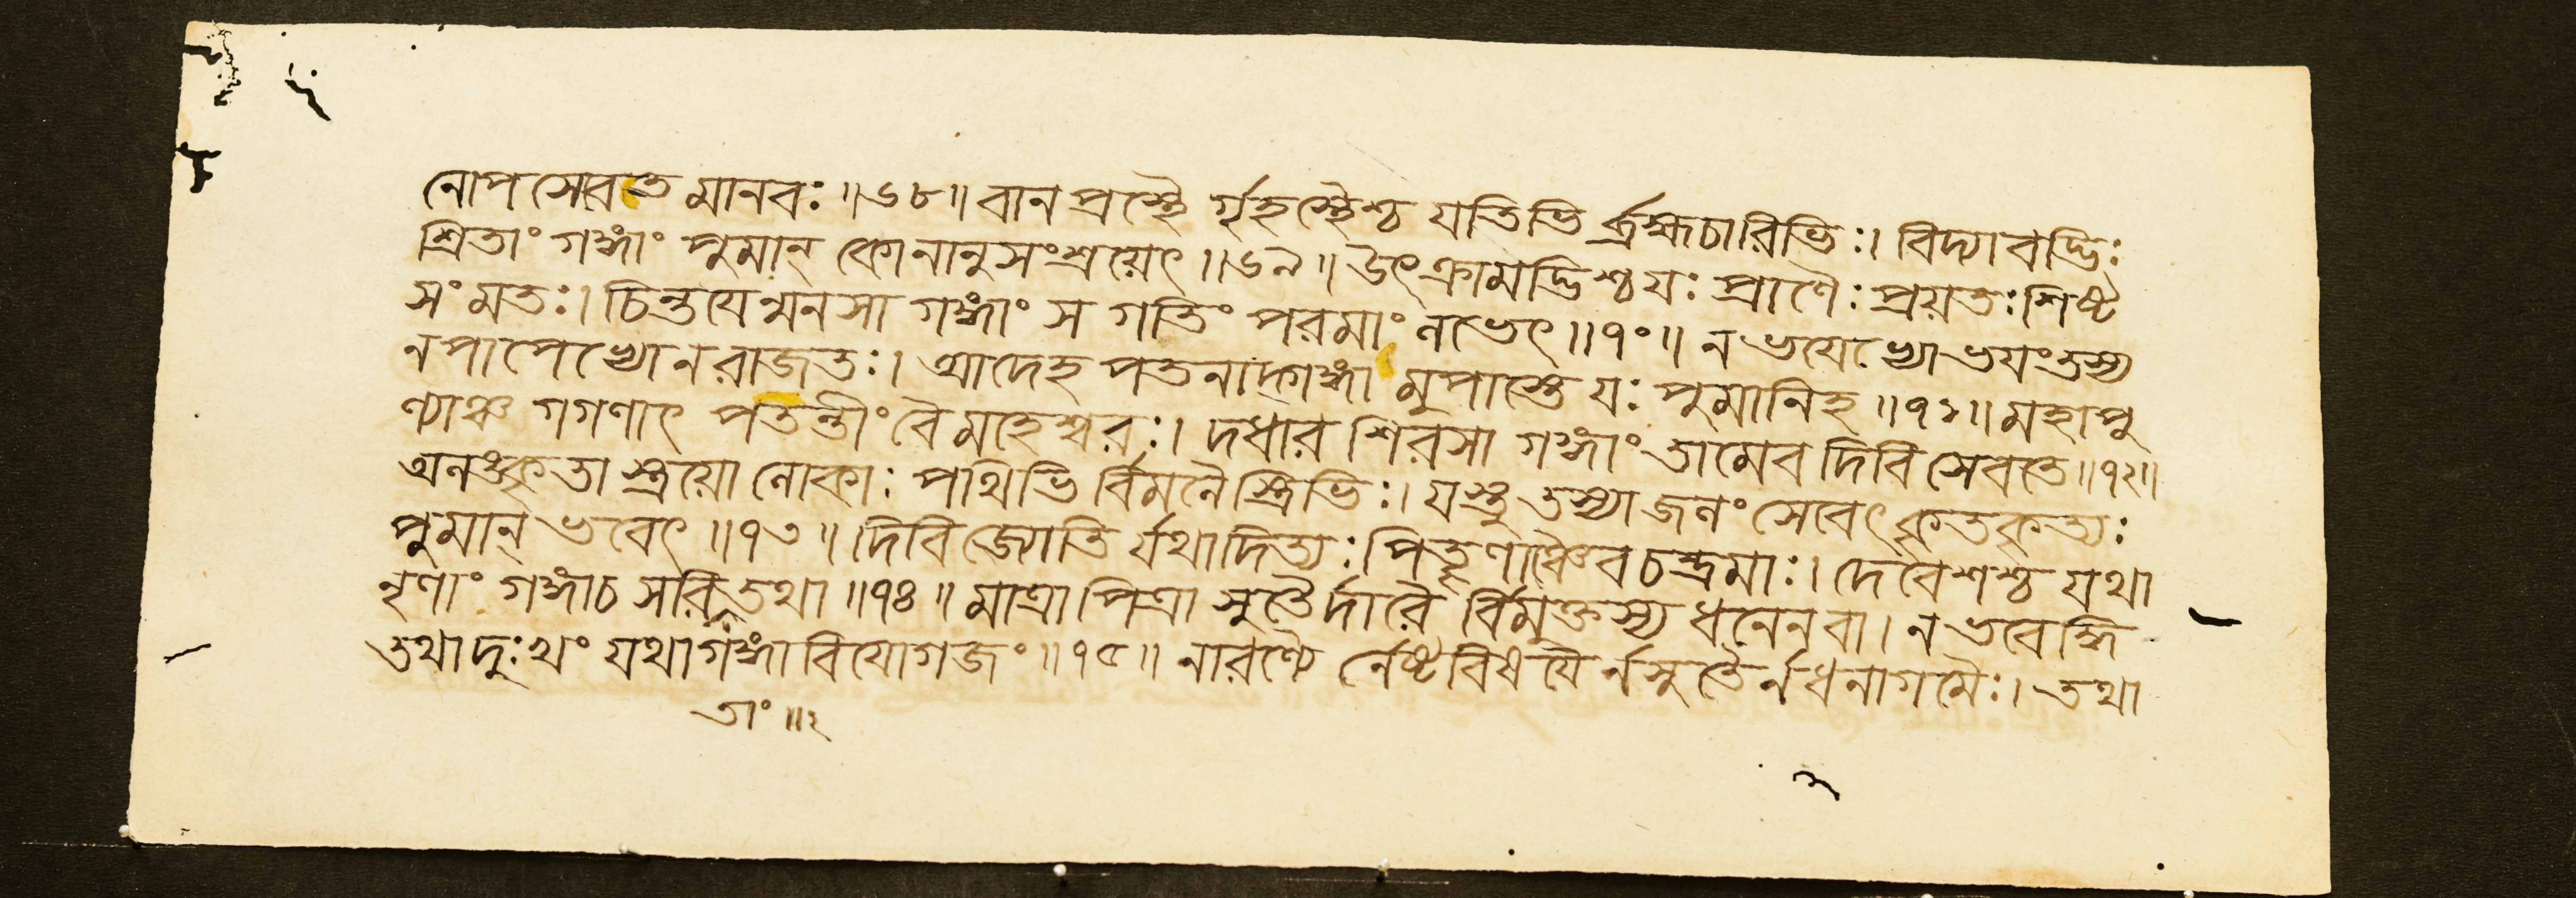 নোপসেবতে মানবঃ ॥৬৮॥ বানপ্রস্থৈ র্গৃহস্থৈশ্চ যতিভি র্ব্রহ্মচারিভিঃ। বিদ্যাবদ্ভিঃ
শ্রিতাং গঙ্গাং পুমান্ কোনানুসংশ্রয়েৎ ॥৬৯॥ উৎক্রামদ্ভিশ্চযঃ প্রাণৈঃ প্রয়তঃশিষ্ট
সংমতঃ। চিন্তযেন্মনসা গঙ্গাং স গতিং পরমাং লভেৎ ॥৭০॥ ন ভযেভ্যোভযংতস্য
নপাপেভ্যোনরাজতঃ। আদেহ পতনাদ্গঙ্গা মুপাস্তে যঃ পুমানিহ ॥৭১॥ মহাপু
ণ্যাঞ্চ গগণাৎ পতন্তীং বৈ মহেশ্বরঃ। দধার শিরসা গঙ্গাং তামেব দিবি সেবতে ॥৭২॥
অলঙ্কৃতা স্ত্রয়ো লোকাঃ পথিভি র্বিমলৈ স্ত্রিভিঃ। যস্তু তস্যা জলং সেবেৎ কৃতকৃত্যঃ
পুমান্ ভবেৎ ॥৭৩॥ দিবি জ্যোতি র্যথাদিত্যঃ পিতৄণাঞ্চৈব চন্দ্রমাঃ। দেবেশশ্চ যথা
নৃণাং গঙ্গাচ সরিতথা ॥৭৪॥ মাত্রা পিত্রা সুতৈর্দারৈ র্বিমুক্তস্য ধনেনবা। ন ভবেদ্ধি
তথাদুঃখং যথাগঙ্গা বিযোগজং ॥৭৫॥ নারণ্যৈ র্নেষ্টবিষযৈ র্নসুতৈর্নধনাগমৈঃ। তথা
তাং ॥২